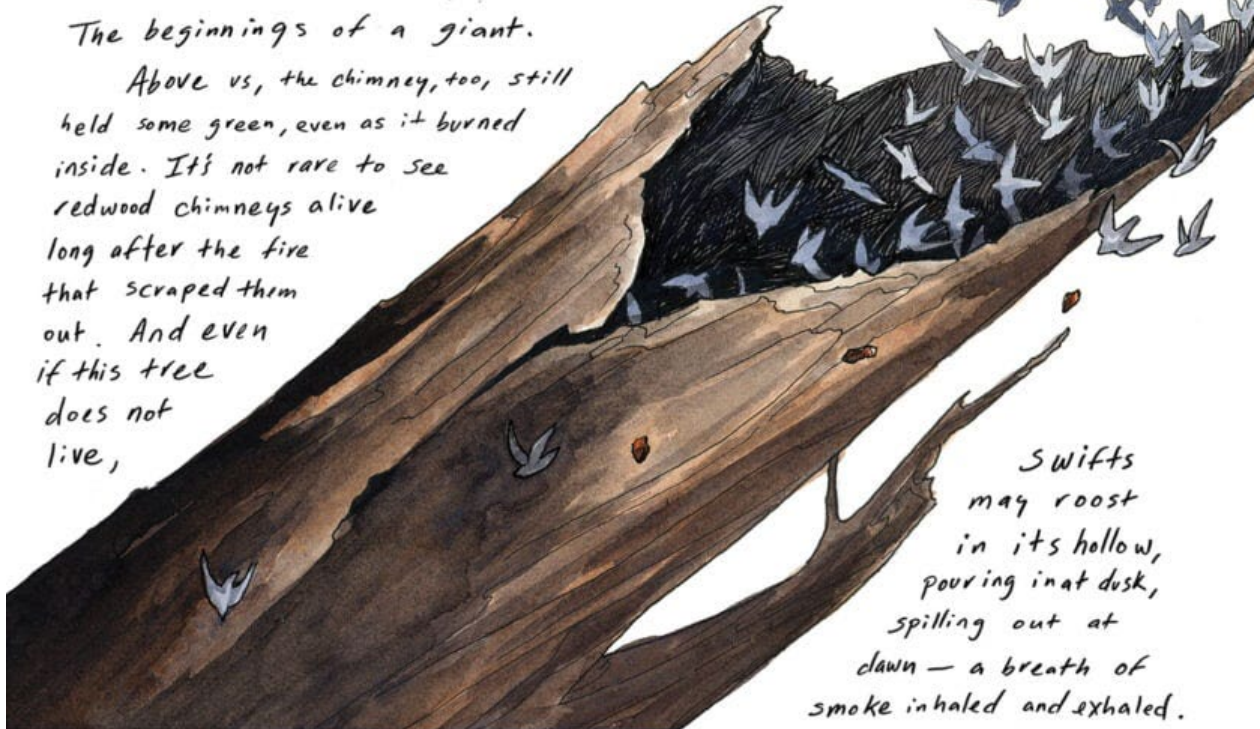 The beginnings of a giant.
Above us, the chimney, too, still
held some green, even as it burned
inside. It's not rare to see
redwood chimneys alive
long after the fire
that scraped them
out. And even
if this tree
does not
live,
swifts
may roost
in its hollow,
pouring in at dusk,
spilling out at
dawn — a breath of
smoke inhaled and exhaled.